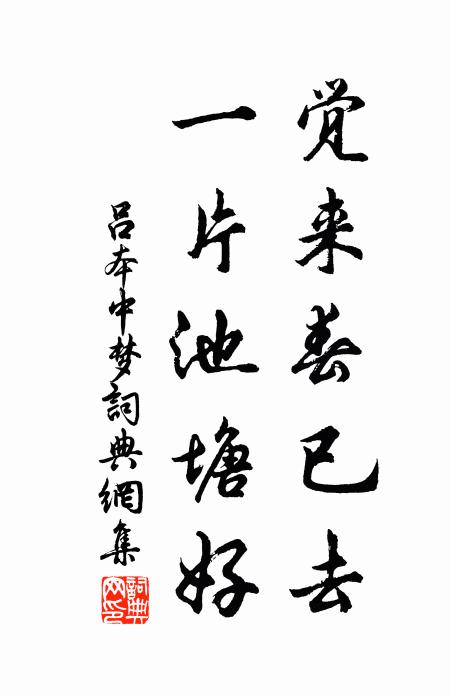 觉来春已去
一片池塘好
吕本中梦詞典網集
詞典网印